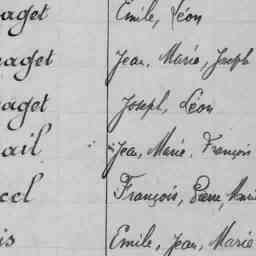 aget Emile, Léon
aget Jean, Marie, Joseph
aget Joseph, Léon
ail Jean, Marie, François
François, Pierre, Marie
is Emile, Jean, Marie